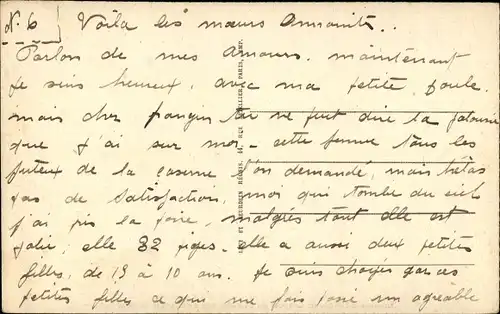 N. 6 Voila les mœurs Annamite..
Parlon de mes amours. maintenant
Je suis heureux, avec ma petite poule.
mais cher frangin tu ne peut dire la jalousie
que j'ai sur moi - cette femme tous les
de la caserne l'on demandé, mais hélas
pas de satisfaction, moi qui tombe du ciel
j'ai pris la foire, malgrés tout elle est
jolie, elle 32 piges - elle a aussi deux petites
filles, de 13 à 10 ans. Je suis choyés par ces
petites filles ce que me fais passé un agréable